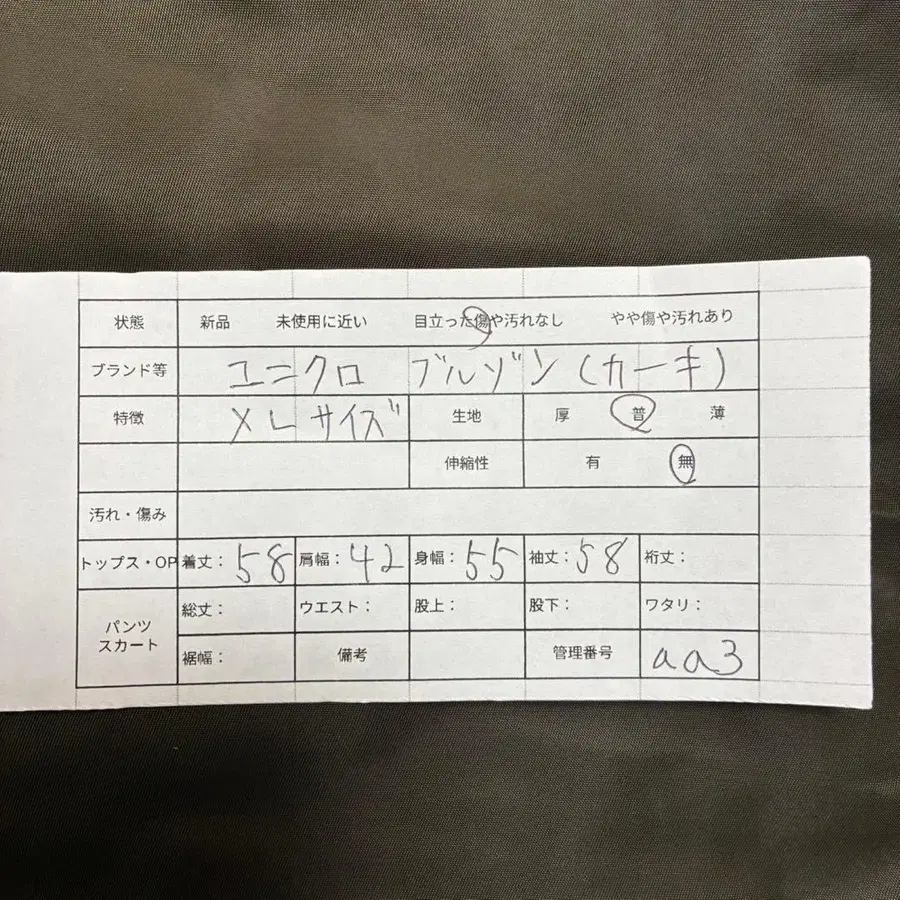 状態 新品 未使用に近い 目立った傷や汚れなし やや傷や汚れあり
ブランド等 ユニクロ ブルゾン(カーキ)
特徴 XLサイズ 生地 厚 普 薄
伸縮性 有 無
汚れ・傷み
トップス・OP 着丈:58 肩幅:42 身幅:55 袖丈:58 裄丈:
パンツ スカート 総丈: ウエスト: 股上: 股下: ワタリ:
裾幅: 備考 管理番号 aa3